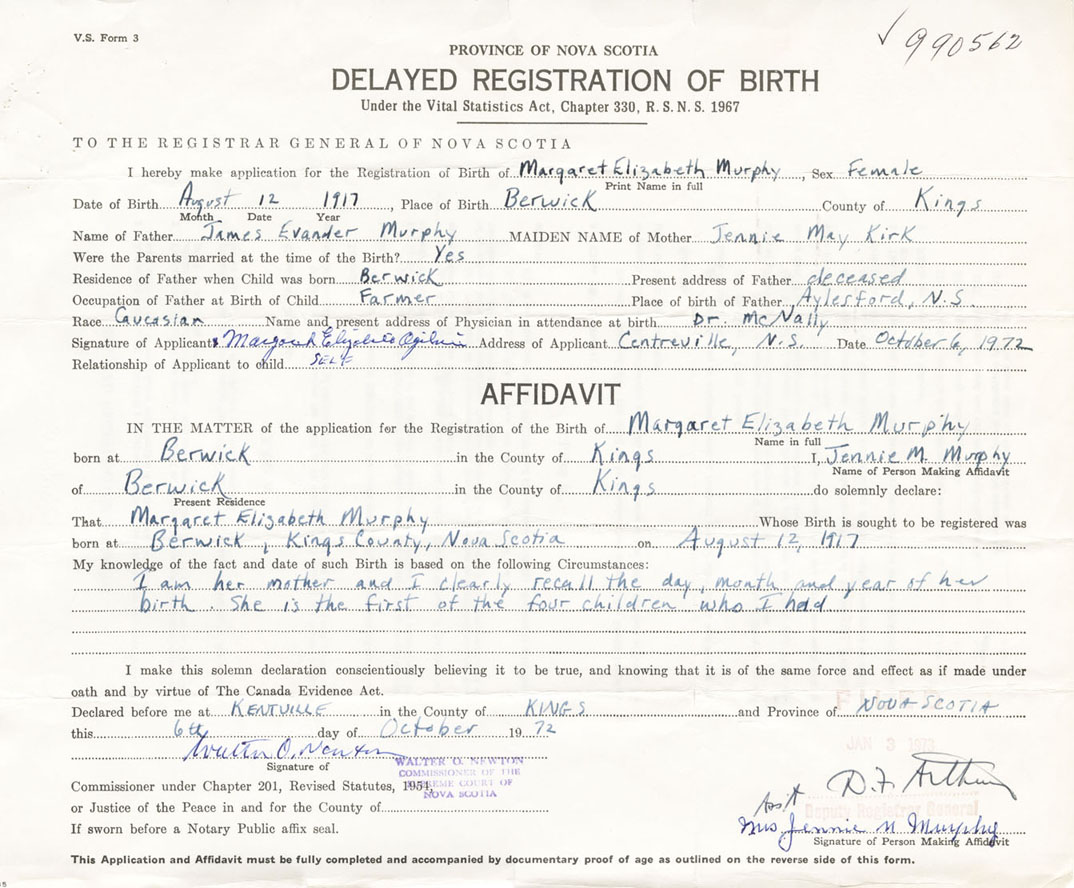 V.S. Form 3
✓ 990562
PROVINCE OF NOVA SCOTIA
DELAYED REGISTRATION OF BIRTH
Under the Vital Statistics Act, Chapter 330, R.S.N.S. 1967
TO THE REGISTRAR GENERAL OF NOVA SCOTIA
I hereby make application for the Registration of Birth of Margaret Elizabeth Murphy, Sex Female
Print Name in full
Date of Birth August 12 1917, Place of Birth Berwick County of Kings
Month Date Year
Name of Father James Evander Murphy MAIDEN NAME of Mother Jennie May Kirk
Were the Parents married at the time of the Birth? Yes
Residence of Father when Child was born Berwick Present address of Father deceased
Occupation of Father at Birth of Child Farmer Place of birth of Father Aylesford, N.S.
Race Caucasian Name and present address of Physician in attendance at birth Dr. McNally
Signature of Applicant x Margaret Elizabeth Ogilvie Address of Applicant Centreville, N.S. Date October 6, 1972
Relationship of Applicant to child SELF
AFFIDAVIT
IN THE MATTER of the application for the Registration of the Birth of Margaret Elizabeth Murphy
Name in full
born at Berwick in the County of Kings I, Jennie M. Murphy
Name of Person Making Affidavit
of Berwick in the County of Kings do solemnly declare:
Present Residence
That Margaret Elizabeth Murphy Whose Birth is sought to be registered was
born at Berwick, Kings County, Nova Scotia on August 12, 1917
My knowledge of the fact and date of such Birth is based on the following Circumstances:
I am her mother and I clearly recall the day, month and year of her
birth. She is the first of the four children who I had
I make this solemn declaration conscientiously believing it to be true, and knowing that it is of the same force and effect as if made under
oath and by virtue of The Canada Evidence Act.
Declared before me at KENTVILLE in the County of KINGS and Province of NOVA SCOTIA
this 6th day of October 1972
JAN 3 1973
Walter O. Newton
Signature of
WALTER O. NEWTON
COMMISSIONER OF THE
SUPREME COURT OF
NOVA SCOTIA
Commissioner under Chapter 201, Revised Statutes, 1954,
D.F. Arthur
Ass't Deputy Registrar General
or Justice of the Peace in and for the County of
Mrs Jennie M Murphy
If sworn before a Notary Public affix seal.
Signature of Person Making Affidavit
This Application and Affidavit must be fully completed and accompanied by documentary proof of age as outlined on the reverse side of this form.